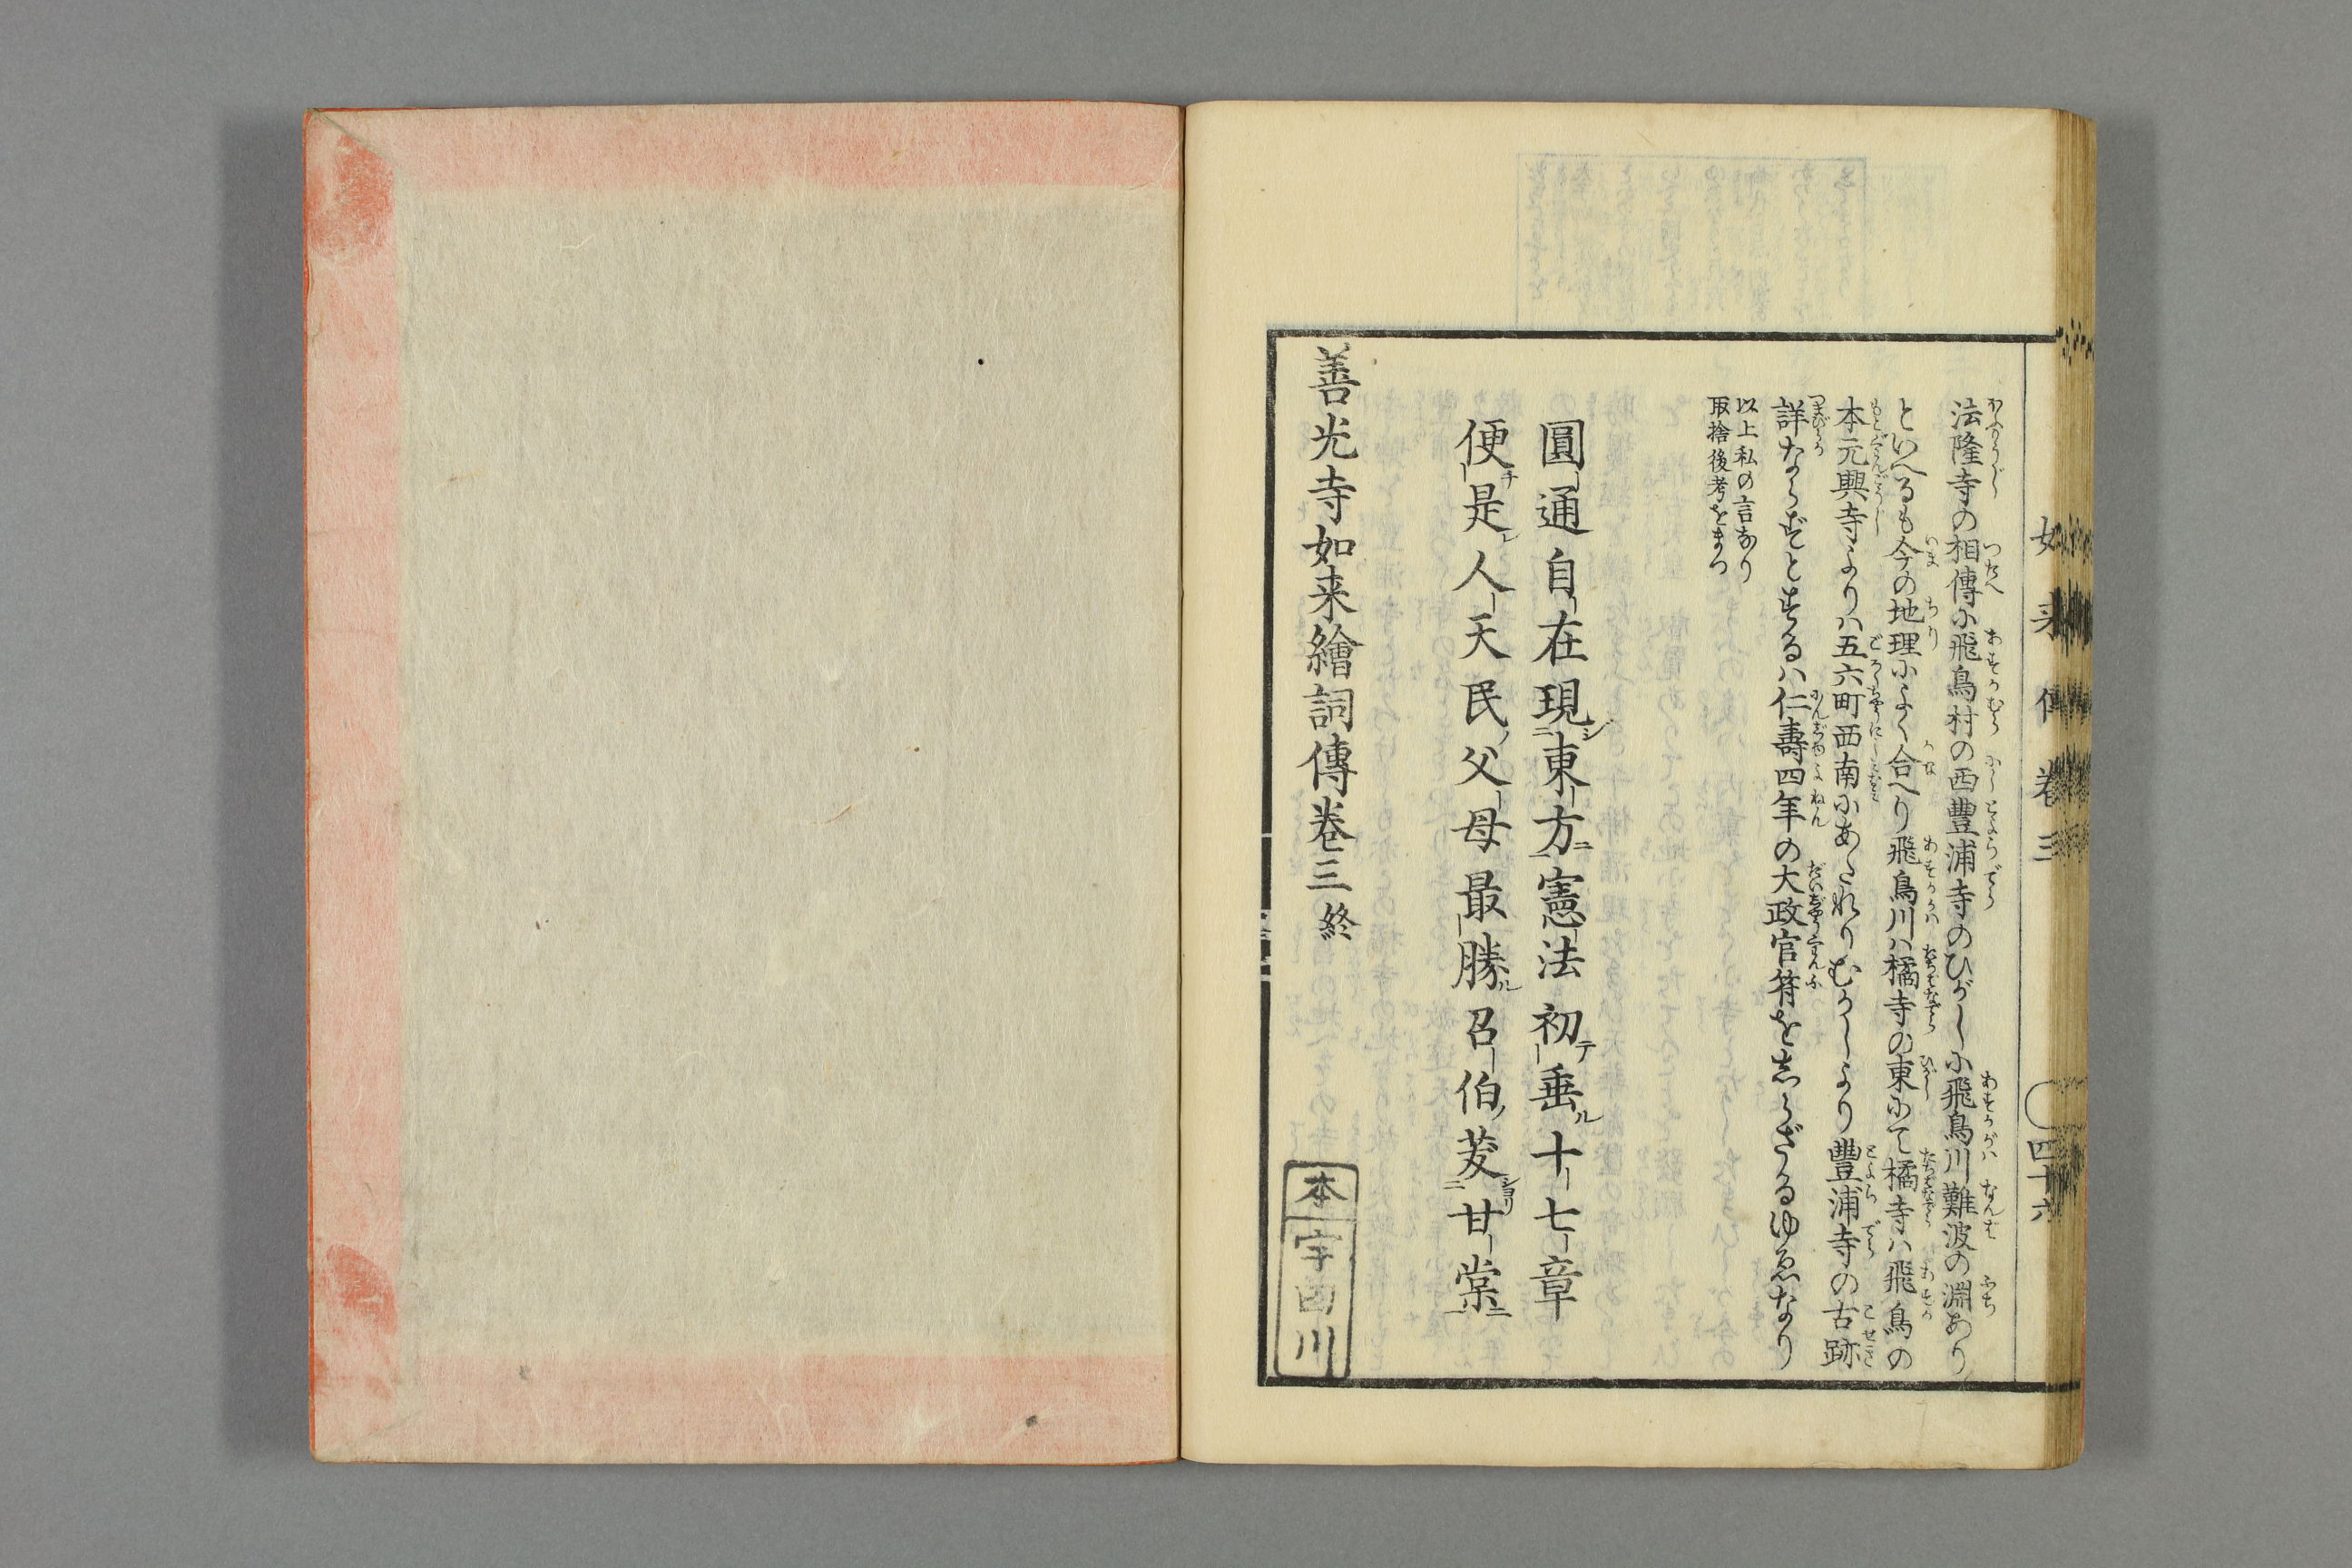 法隆寺の相傳小飛鳥村の西豐浦寺のひがし小飛鳥川難波の淵あり
といへるも今の地理小よく合へり飛鳥川ハ橘寺の東小て橘寺ハ飛鳥の
本元興寺よりハ五六町西南小あたれりむかしより豐浦寺の古跡
詳ならずとするハ仁壽四年の大政官符をしらざるゆゑなり
以上私の言なり
取捨後考をまつ
圓通自在現東方憲法初垂十七章
便是人天民父母最勝召伯茇甘棠
善光寺如来繪詞傳卷三終
本宇田川
如来傳卷三
四十六